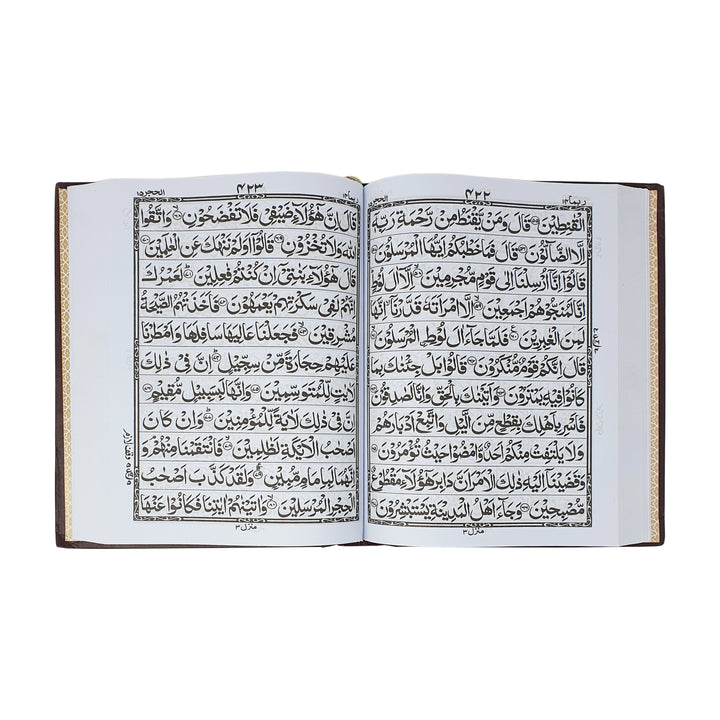 ربما ١٤
۴۲۲
الحجر
الْقٰنِطِيْنَ قَالَ وَمَنْ يَّقْنَطُ مِنْ رَّحْمَةِ رَبِّهٖۤ
اِلَّا الضَّآلُّوْنَ قَالَ فَمَا خَطْبُكُمْ اَيُّهَا الْمُرْسَلُوْنَ
قَالُوْۤا اِنَّاۤ اُرْسِلْنَاۤ اِلٰى قَوْمٍ مُّجْرِمِيْنَ اِلَّاۤ اٰلَ لُوْطٍ
اِنَّا لَمُنَجُّوْهُمْ اَجْمَعِيْنَ اِلَّا امْرَاَتَهٗ قَدَّرْنَاۤ اِنَّهَا
لَمِنَ الْغٰبِرِيْنَ فَلَمَّا جَآءَ اٰلَ لُوْطِ ِۨالْمُرْسَلُوْنَ
قَالَ اِنَّكُمْ قَوْمٌ مُّنْكَرُوْنَ قَالُوْا بَلْ جِئْنٰكَ بِمَا
كَانُوْا فِيْهِ يَمْتَرُوْنَ وَاَتَيْنٰكَ بِالْحَقِّ وَاِنَّا لَصٰدِقُوْنَ
فَاَسْرِ بِاَهْلِكَ بِقِطْعٍ مِّنَ الَّيْلِ وَاتَّبِعْ اَدْبَارَهُمْ
وَلَا يَلْتَفِتْ مِنْكُمْ اَحَدٌ وَّامْضُوْا حَيْثُ تُؤْمَرُوْنَ
وَقَضَيْنَاۤ اِلَيْهِ ذٰلِكَ الْاَمْرَ اَنَّ دَابِرَ هٰۤؤُلَآءِ مَقْطُوْعٌ
مُّصْبِحِيْنَ وَجَآءَ اَهْلُ الْمَدِيْنَةِ يَسْتَبْشِرُوْنَ
منزل ۳
۴۲۳
الحجر ١٥
قَالَ اِنَّ هٰۤؤُلَآءِ ضَيْفِيْ فَلَا تَفْضَحُوْنِ وَاتَّقُوا
اللّٰهَ وَلَا تُخْزُوْنِ قَالُوْۤا اَوَلَمْ نَنْهَكَ عَنِ الْعٰلَمِيْنَ
قَالَ هٰۤؤُلَآءِ بَنٰتِيْۤ اِنْ كُنْتُمْ فٰعِلِيْنَ لَعَمْرُكَ
اِنَّهُمْ لَفِيْ سَكْرَتِهِمْ يَعْمَهُوْنَ فَاَخَذَتْهُمُ الصَّيْحَةُ
مُشْرِقِيْنَ فَجَعَلْنَا عَالِيَهَا سَافِلَهَا وَاَمْطَرْنَا
عَلَيْهِمْ حِجَارَةً مِّنْ سِجِّيْلٍ اِنَّ فِيْ ذٰلِكَ
لَاٰيٰتٍ لِّلْمُتَوَسِّمِيْنَ وَاِنَّهَا لَبِسَبِيْلٍ مُّقِيْمٍ
اِنَّ فِيْ ذٰلِكَ لَاٰيَةً لِّلْمُؤْمِنِيْنَ وَاِنْ كَانَ
اَصْحٰبُ الْاَيْكَةِ لَظٰلِمِيْنَ فَانْتَقَمْنَا مِنْهُمْ وَ
اِنَّهُمَا لَبِاِمَامٍ مُّبِيْنٍ وَلَقَدْ كَذَّبَ اَصْحٰبُ
الْحِجْرِ الْمُرْسَلِيْنَ وَاٰتَيْنٰهُمْ اٰيٰتِنَا فَكَانُوْا عَنْهَا
منزل ۳